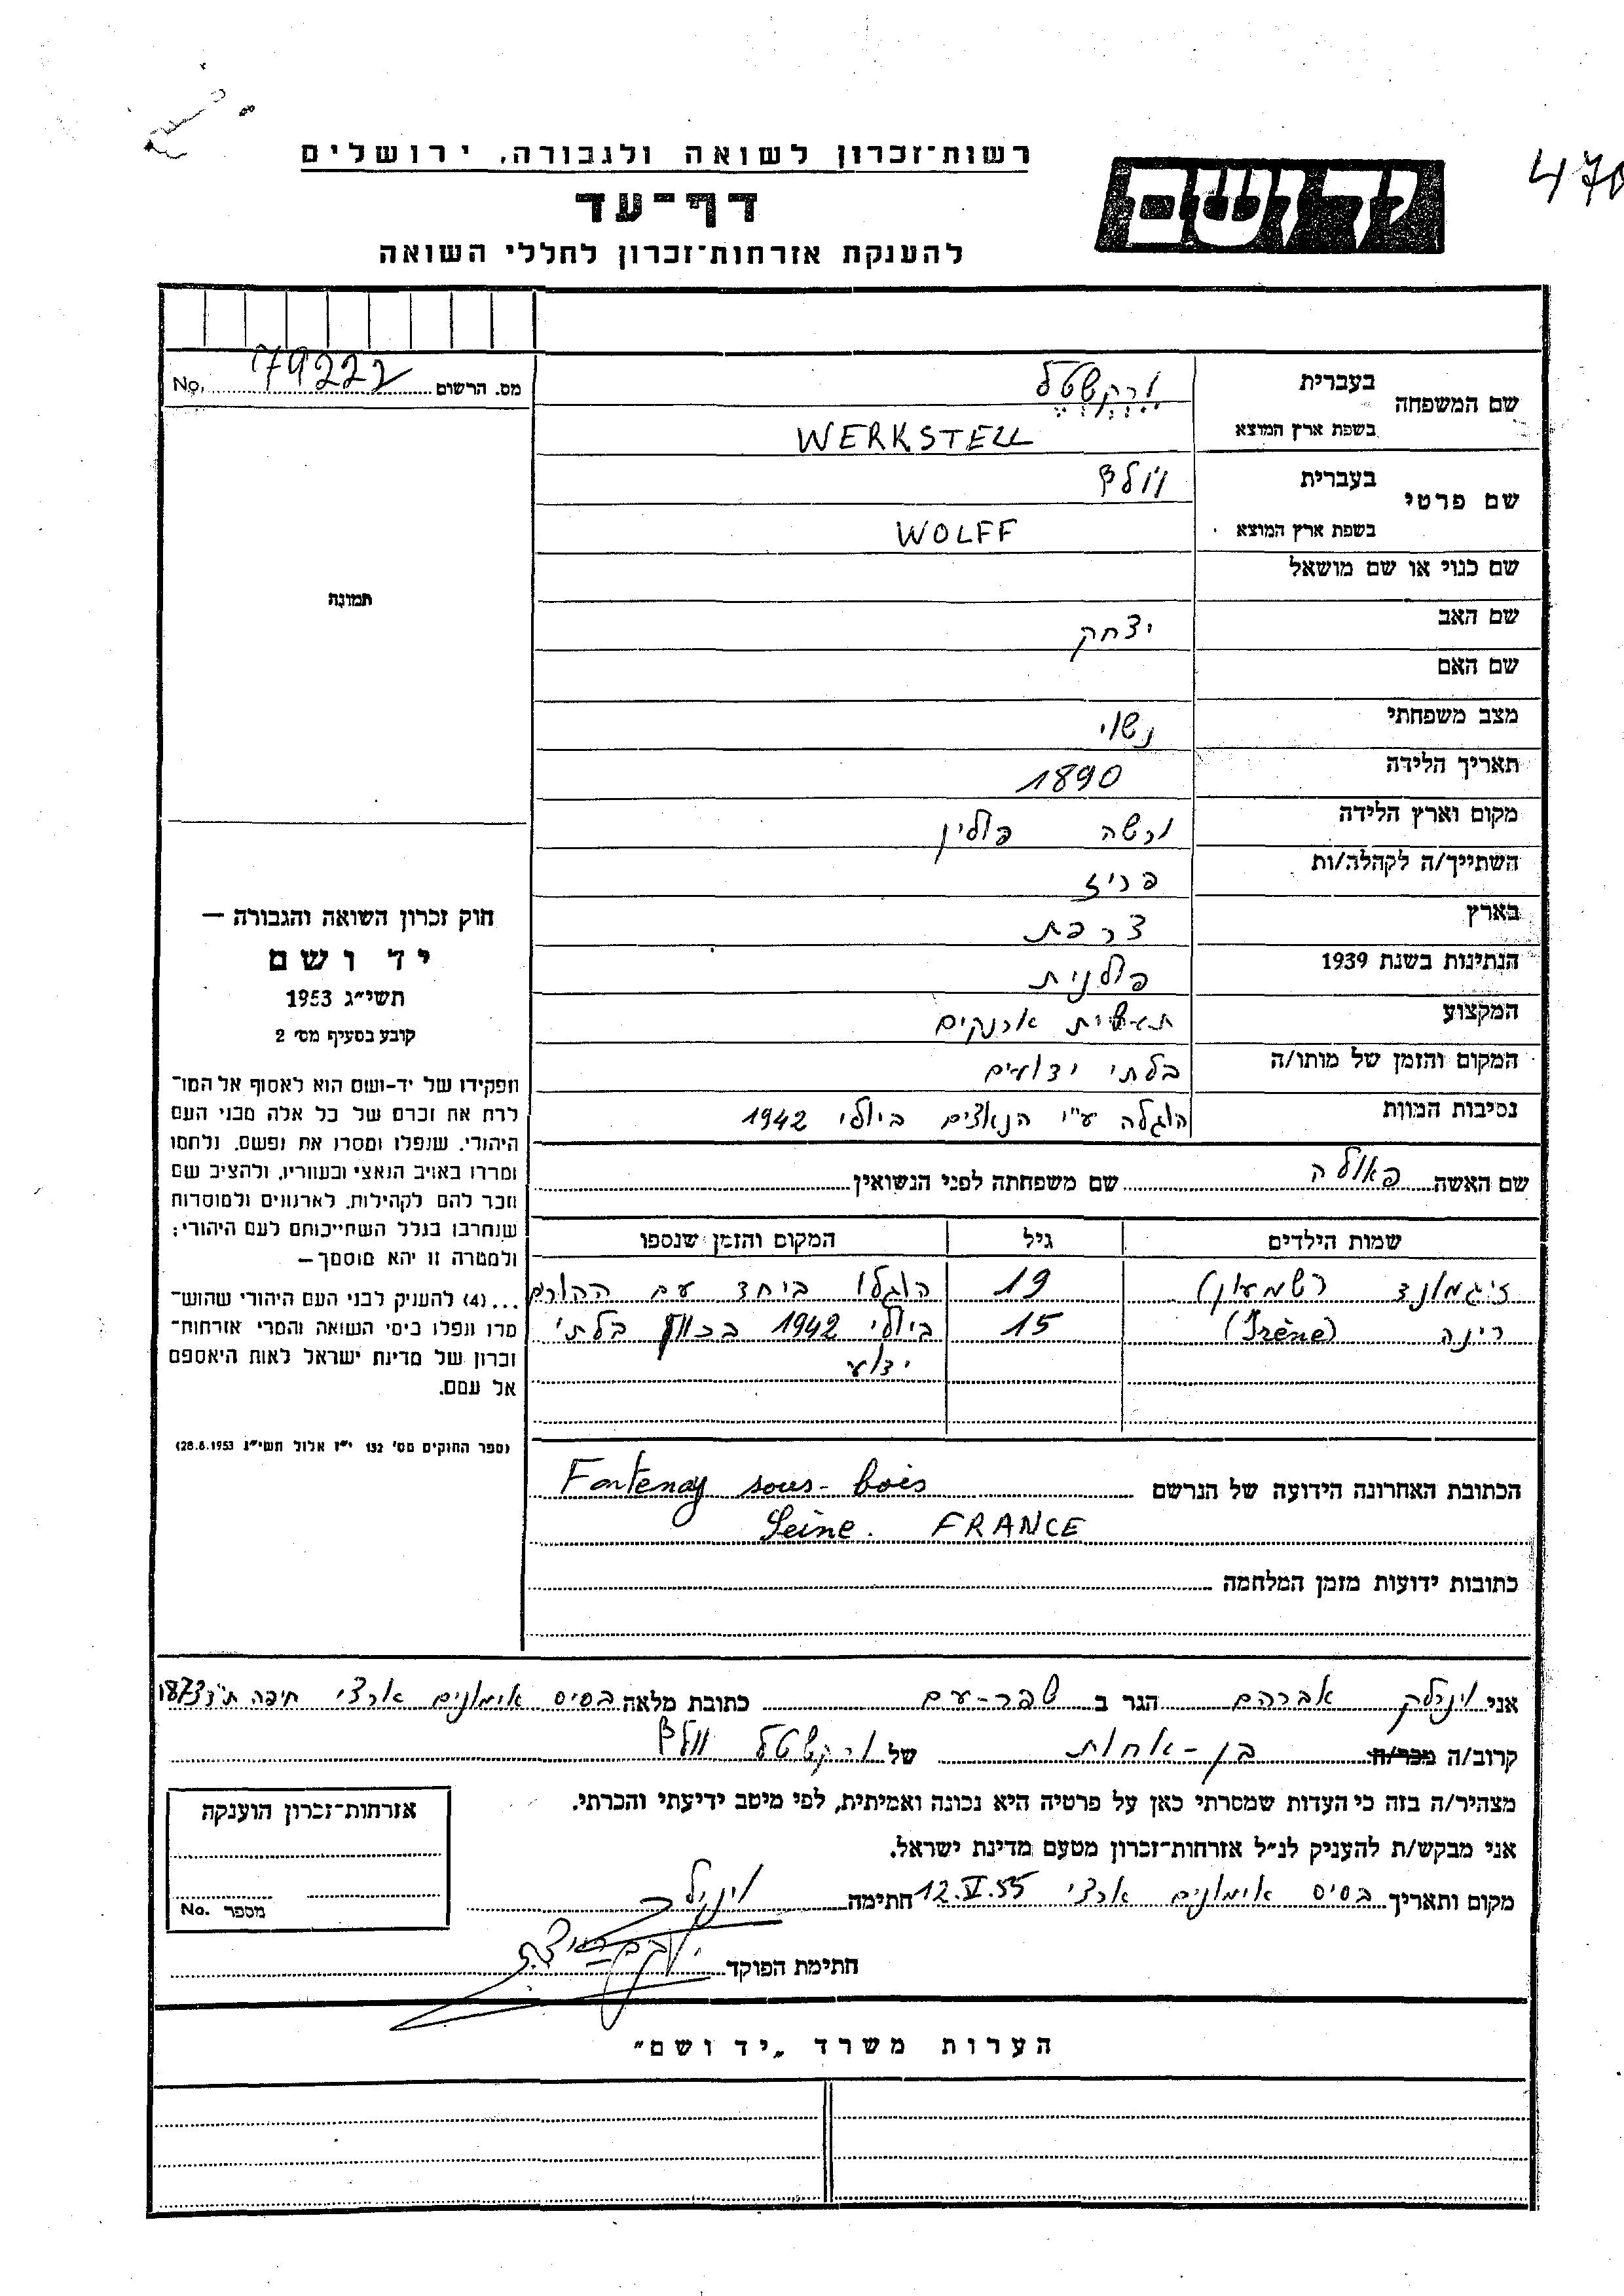 470
יד ושם
רשות־זכרון לשואה ולגבורה, ירושלים
דף־עד
להענקת אזרחות־זכרון לחללי השואה
מס. הרשום 79222 No.
שם המשפחה
בעברית ורקשטל
בשפת ארץ המוצא WERKSTELL
שם פרטי
בעברית וולף
בשפת ארץ המוצא WOLFF
שם כנוי או שם מושאל
שם האב יצחק
שם האם
מצב משפחתי נשוי
תאריך הלידה 1890
מקום וארץ הלידה ורשה פולין
השתייך/ה לקהלה/ות פריז
בארץ צרפת
הנתינות בשנת 1939 פולנית
המקצוע תעשית ארנקים
המקום והזמן של מותו/ה בלתי ידועים
נסיבות המוות הוגלה ע"י הנאצים ביולי 1942
שם האשה פאולה שם משפחתה לפני הנשואין
שמות הילדים גיל המקום והזמן שנספו
זיגמונד (שמעון) 19 הוגלו ביחד עם ההורים
רינה (Irène) 15 ביולי 1942 בכוון בלתי
ידוע
הכתובת האחרונה הידועה של הנרשם Fontenay sous-bois
Seine. FRANCE
כתובות ידועות מזמן המלחמה
תמונה
חוק זכרון השואה והגבורה —
יד ושם
תשי״ג 1953
קובע בסעיף מס׳ 2
תפקידו של יד-ושם הוא לאסוף אל המו־
לדת את זכרם של כל אלה מבני העם
היהודי, שנפלו ומסרו את נפשם, נלחמו
ומרדו באויב הנאצי ובעוזריו, ולהציב שם
וזכר להם לקהילות, לארגונים ולמוסדות
שנחרבו בגלל השתייכותם לעם היהודי;
ולמטרה זו יהא מוסמך—
...(4) להעניק לבני העם היהודי שהוש־
מדו ונפלו בימי השואה והמרי אזרחות־
זכרון של מדינת ישראל לאות היאספם
אל עמם.
(ספר החוקים מס׳ 132 י״ז אלול תשי״ג 28.8.1953)
אני וינילק אברהם הגר ב שפר-עם כתובת מלאה בסיס אימונים ארצי חיפה ת"ד 1873
קרוב/ה מכר/ה בן-אחות של ורקשטל וולף
מצהיר/ה בזה כי העדות שמסרתי כאן על פרטיה היא נכונה ואמיתית, לפי מיטב ידיעתי והכרתי.
אני מבקש/ת להעניק לנ״ל אזרחות־זכרון מטעם מדינת ישראל.
מקום ותאריך בסיס אימונים ארצי 12.VI.55 חתימה
חתימת הפוקד
אזרחות־זכרון הוענקה
מספר No.
הערות משרד „יד ושם"